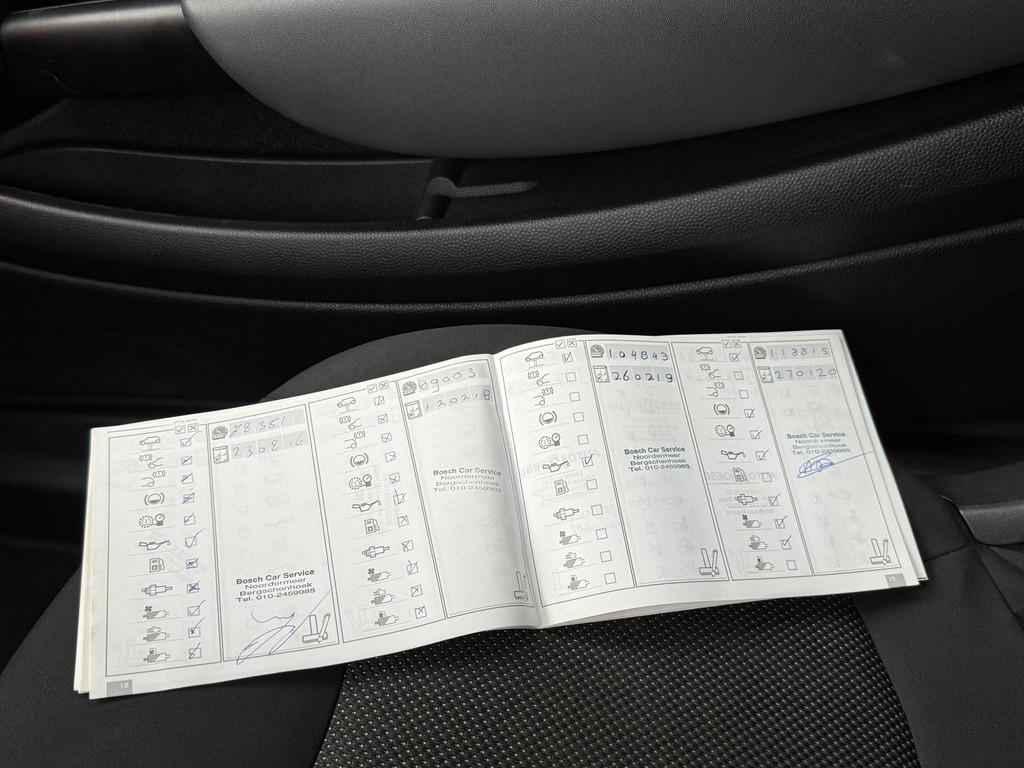 78.351
230816
Bosch Car Service
Noordermeer
Bergschenhoek
Tel. 010-2459985
89003
120218
Bosch Car Service
Noordermeer
Bergschenhoek
Tel. 010-2459985
104843
260219
Bosch Car Service
Noordermeer
Bergschenhoek
Tel. 010-2459985
270120
Bosch Car Service
Noordermeer
Bergschenhoek
Tel. 010-2459985
18